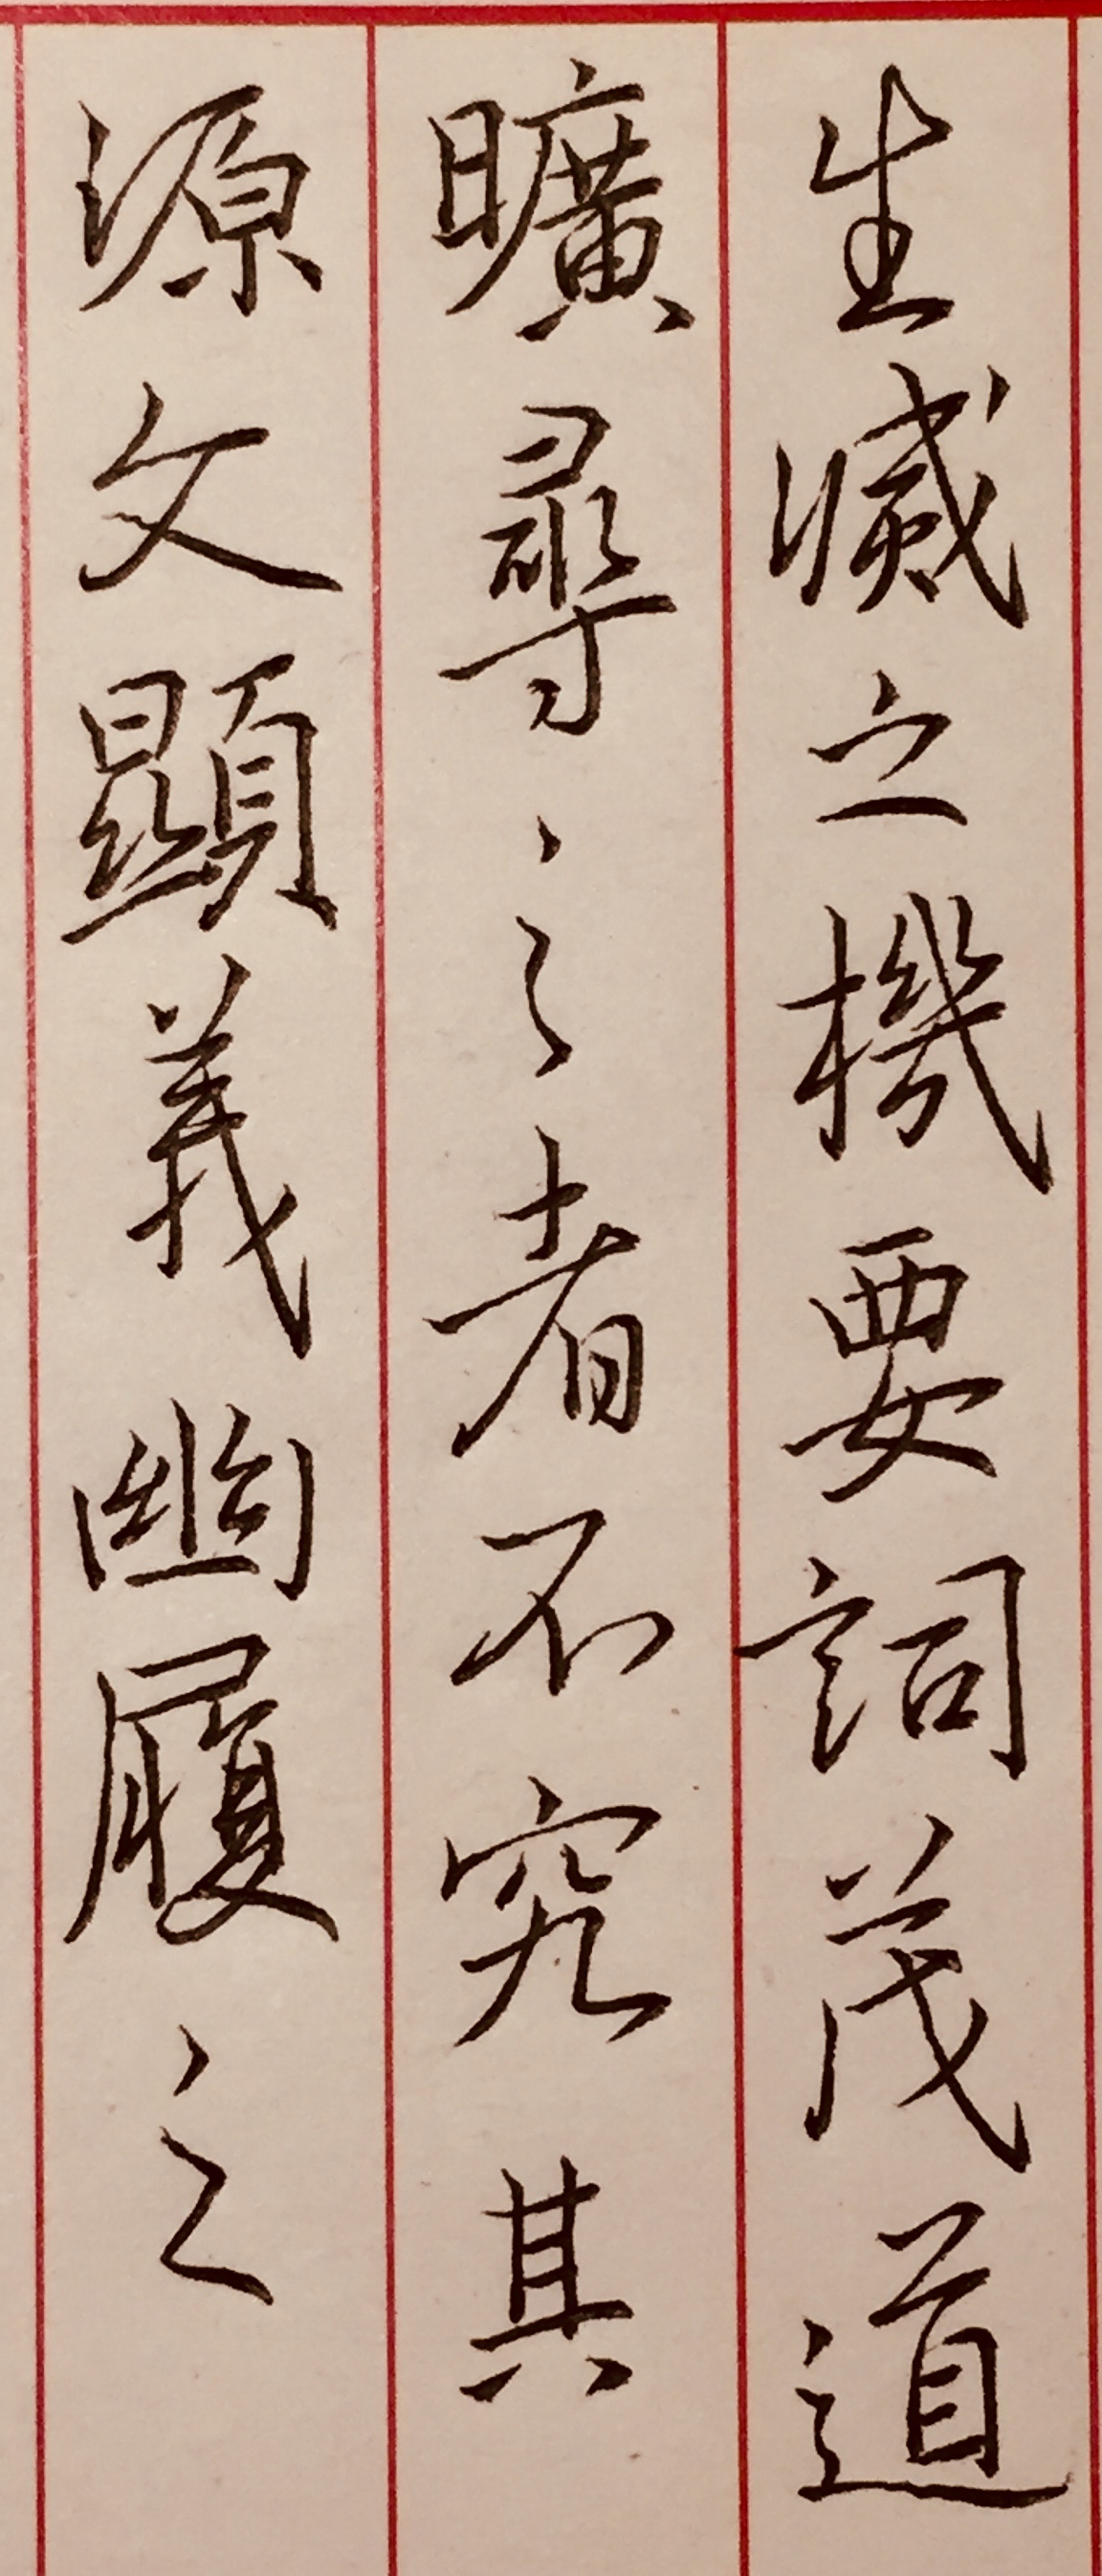 生滅之機要詞茂道
曠尋之者不究其
源文顯義幽履之